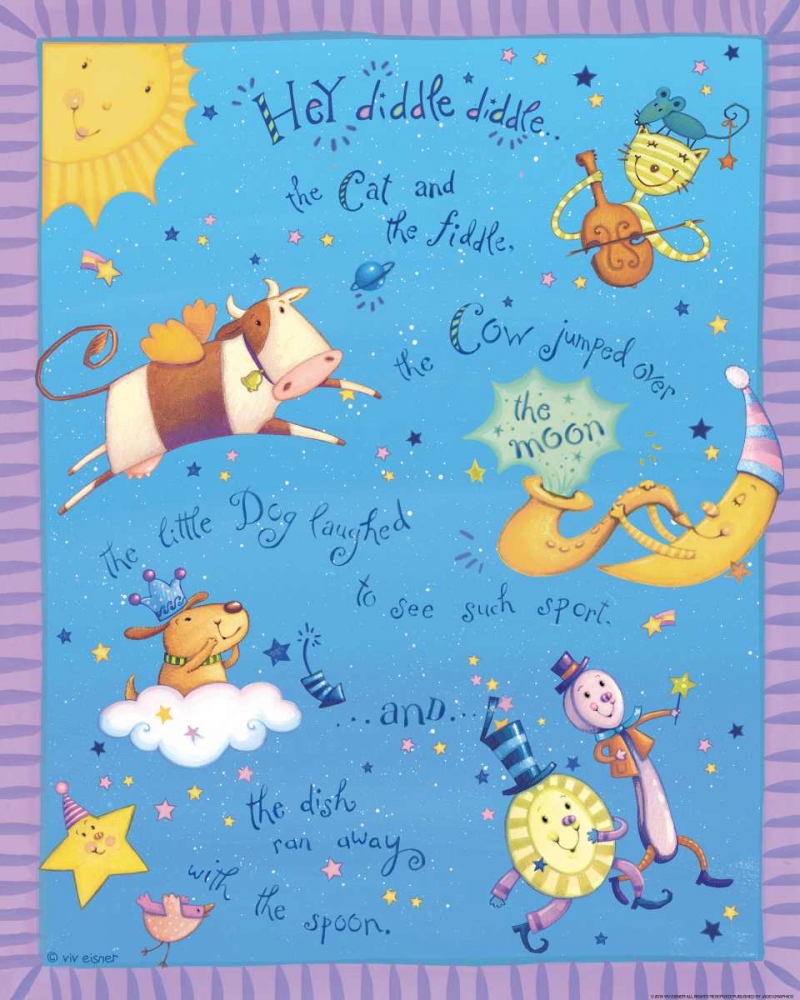 HeY diddle diddle..
the Cat and
the fiddle,
the Cow jumped over
the
moon
the little Dog laughed
to see such sport.
...and...
the dish
ran away
with the spoon.
© viv eisner